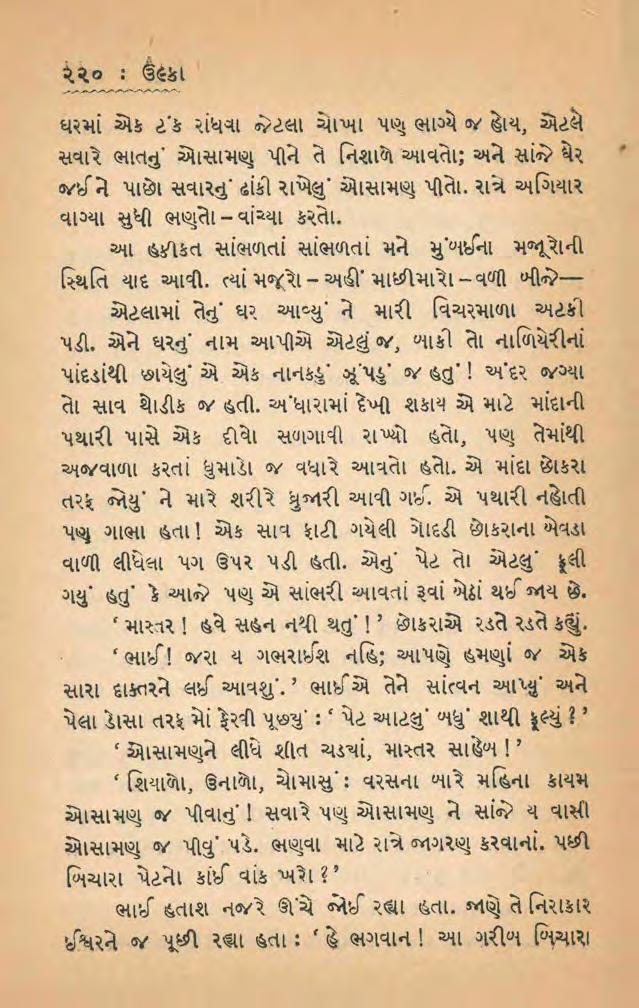 ૨૨૦ : ઉલ્કા
ઘરમાં એક ટંક રાંધવા જેટલા ચોખા પણ ભાગ્યે જ હોય, એટલે
સવારે ભાતનું ઓસામણ પીને તે નિશાળે આવતો; અને સાંજે ઘેર
જઈને પાછો સવારનું ઢાંકી રાખેલું ઓસામણ પીતો. રાત્રે અગિયાર
વાગ્યા સુધી ભણતો – વાંચ્યા કરતો.
આ હકીકત સાંભળતાં સાંભળતાં મને મુંબઈના મજૂરોની
સ્થિતિ યાદ આવી. ત્યાં મજૂરો – અહીં માછીમારો – વળી બીજે—
એટલામાં તેનું ઘર આવ્યું ને મારી વિચરમાળા અટકી
પડી. એને ઘરનું નામ આપીએ એટલું જ, બાકી તો નાળિયેરીનાં
પાંદડાંથી છાયેલું એ એક નાનકડું ઝૂંપડું જ હતું! અંદર જગ્યા
તો સાવ થોડીક જ હતી. અંધારામાં દેખી શકાય એ માટે માંદાની
પથારી પાસે એક દીવો સળગાવી રાખ્યો હતો, પણ તેમાંથી
અજવાળા કરતાં ધુમાડો જ વધારે આવતો હતો. એ માંદા છોકરા
તરફ જોયું ને મારે શરીરે ધ્રુજારી આવી ગઈ. એ પથારી નહોતી
પણ ગાભા હતા! એક સાવ ફાટી ગયેલી ગોદડી છોકરાના બેવડા
વાળી લીધેલા પગ ઉપર પડી હતી. એનું પેટ તો એટલું ફૂલી
ગયું હતું કે આજે પણ એ સાંભરી આવતાં રૂવાં બેઠાં થઈ જાય છે.
‘માસ્તર! હવે સહન નથી થતું!’ છોકરાએ રડતે રડતે કહ્યું.
‘ભાઈ! જરા ય ગભરાઈશ નહિ; આપણે હમણાં જ એક
સારા દાક્તરને લઈ આવશું.’ ભાઈએ તેને સાંત્વન આપ્યું અને
પેલા ડોસા તરફ મોં ફેરવી પૂછ્યું : ‘પેટ આટલું બધું શાથી ફૂલ્યું?’
‘ઓસામણને લીધે શીત ચડ્યાં, માસ્તર સાહેબ!’
‘શિયાળો, ઉનાળો, ચોમાસું : વરસના બારે મહિના કાયમ
ઓસામણ જ પીવાનું! સવારે પણ ઓસામણ ને સાંજે ય વાસી
ઓસામણ જ પીવું પડે. ભણવા માટે રાત્રે જાગરણ કરવાનાં. પછી
બિચારા પેટનો કાંઈ વાંક ખરો?’
ભાઈ હતાશ નજરે ઊંચે જોઈ રહ્યા હતા. જાણે તે નિરાકાર
ઈશ્વરને જ પૂછી રહ્યા હતા : ‘હે ભગવાન! આ ગરીબ બિચારા